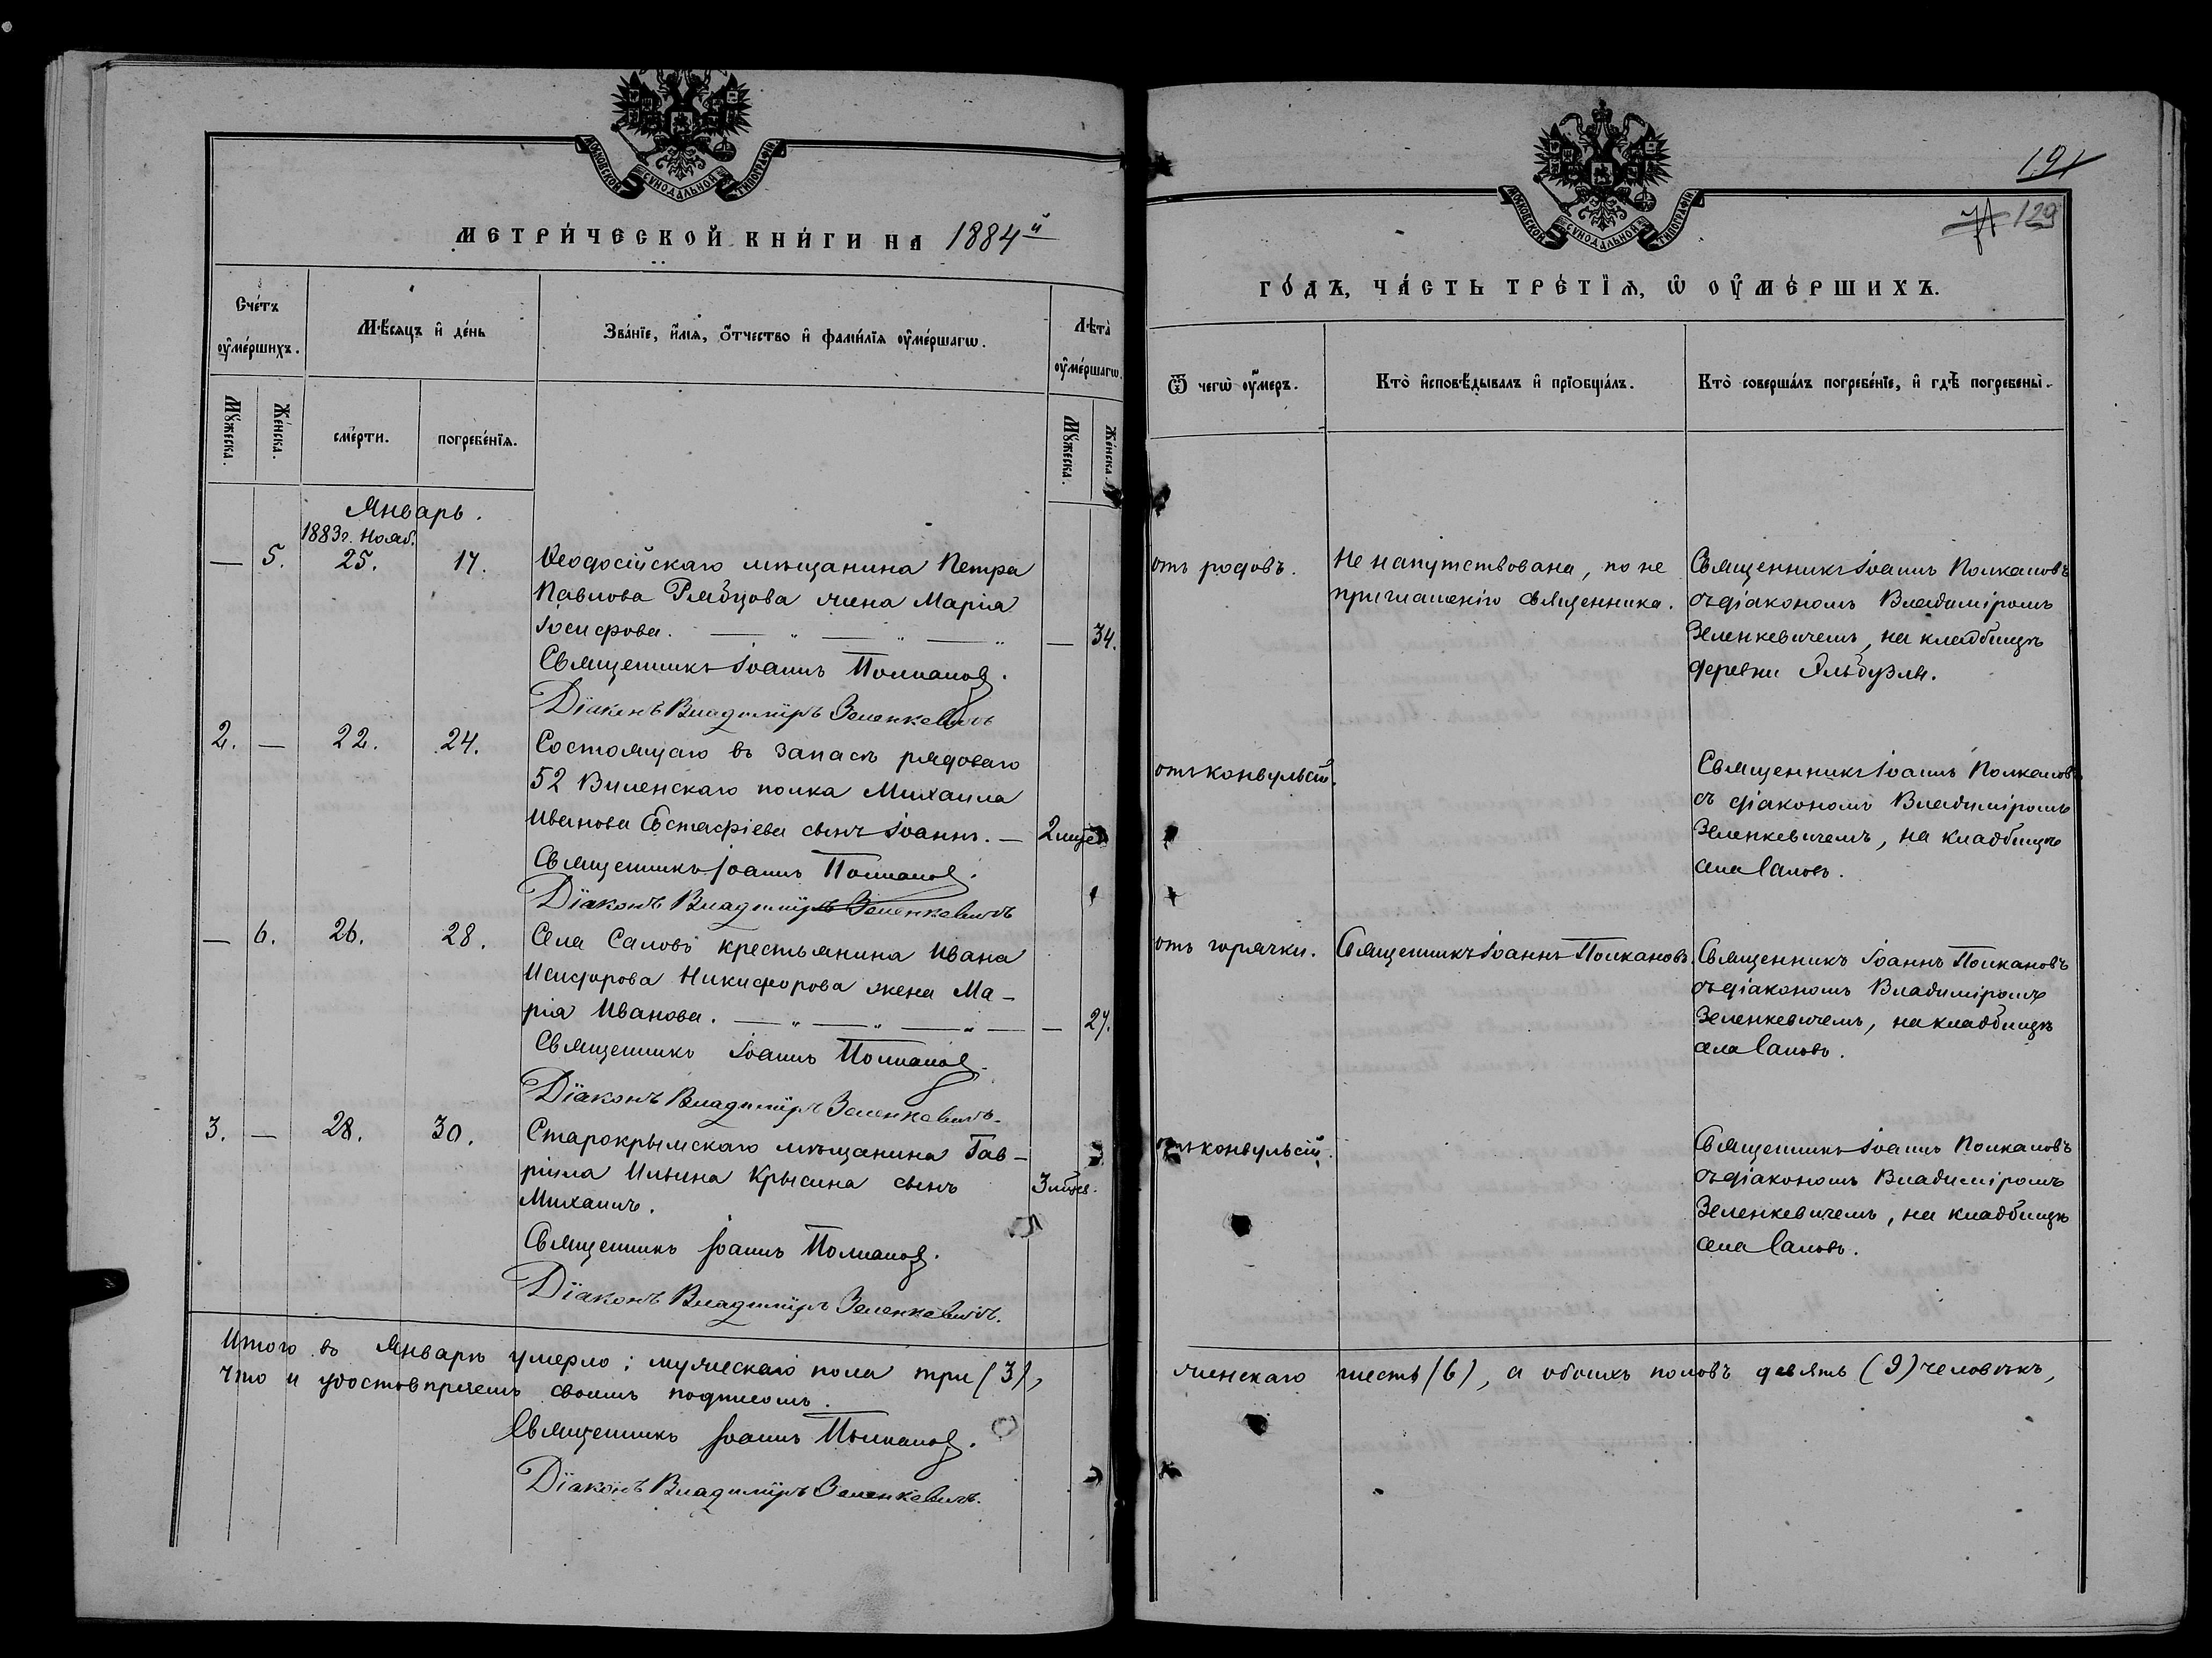 МОСКОВСКОЙ СУНОДАЛЬНОЙ ТИПОГРАФІИ
МЕТРИ́ЧЕСКОЙ КНИ́ГИ НА 1884й
Сче́тъ ᲂу҆ме́ршихъ.
Мѣ́сяцъ и҆ де́нь
Зва́нїе, и҆́мѧ, ѻ҆́тчество и҆ фами́лїѧ ᲂу҆ме́ршагѡ.
Лѣта̀ ᲂу҆ме́ршагѡ.
Мꙋ́жеска.
Же́нска.
сме́рти.
погребе́нїѧ.
Мꙋ́жеска.
Же́нска.
Январь.
1883г. Нояб.
— 5. 25. 17. Ѳеодосійскаго мѣщанина Петра
Павлова Рябцова жена Марія
Іосифова. — 34.
Священникъ Іоаннъ Полкановъ.
Діаконъ Владиміръ Зеленкевичъ
2. — 22. 24. Состоящаго въ запасѣ рядоваго
52 Виленскаго полка Михаила
Иванова Евстафіева сынъ Іоаннъ. — 2
Священникъ Іоаннъ Полкановъ.
Діаконъ Владиміръ Зеленкевичъ
— 6. 26. 28. Села Саловъ крестьянина Ивана
Исидорова Никифорова жена Ма-
рія Иванова. — 27.
Священникъ Іоаннъ Полкановъ.
Діаконъ Владиміръ Зеленкевичъ.
3. — 28. 30. Старокрымскаго мѣщанина Гав-
ріила Ильина Крысина сынъ 3
Михаилъ.
Священникъ Іоаннъ Полкановъ.
Діаконъ Владиміръ Зеленкевичъ.
Итого въ Январѣ умерло: мужескаго пола три (3),
что и удостовѣряемъ своимъ подписомъ.
Священникъ Іоаннъ Полкановъ.
Діаконъ Владиміръ Зеленкевичъ.
МОСКОВСКОЙ СУНОДАЛЬНОЙ ТИПОГРАФІИ
191
129
ГО́ДЪ, ЧА́СТЬ ТРЕ́ТЇѦ, Ѡ ОУ҆МЕ́РШИХЪ.
Ѿ чегѡ̀ ᲂу҆́меръ.
Кто̀ и҆сповѣ́дывалъ и҆ прїобща́лъ.
Кто̀ соверша́лъ погребе́нїе, и҆ гдѣ̀ погребены̀.
отъ родовъ.
Не напутствована, по не
приглашенію священника.
Священникъ Іоаннъ Полкановъ
съ діакономъ Владиміромъ
Зеленкевичемъ, на кладбищѣ
деревни Альбузлы.
отъ конвульсій.
Священникъ Іоаннъ Полкановъ
съ діакономъ Владиміромъ
Зеленкевичемъ, на кладбищѣ
села Саловъ.
отъ горячки.
Священникъ Іоаннъ Полкановъ.
Священникъ Іоаннъ Полкановъ
съ діакономъ Владиміромъ
Зеленкевичемъ, на кладбищѣ
села Саловъ.
отъ конвульсій.
Священникъ Іоаннъ Полкановъ
съ діакономъ Владиміромъ
Зеленкевичемъ, на кладбищѣ
села Саловъ.
женскаго шесть (6), а обоихъ половъ девять (9) человѣкъ,